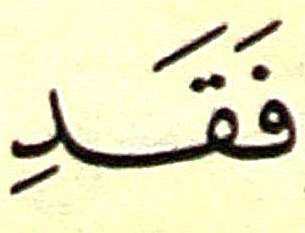 فَقَدِ